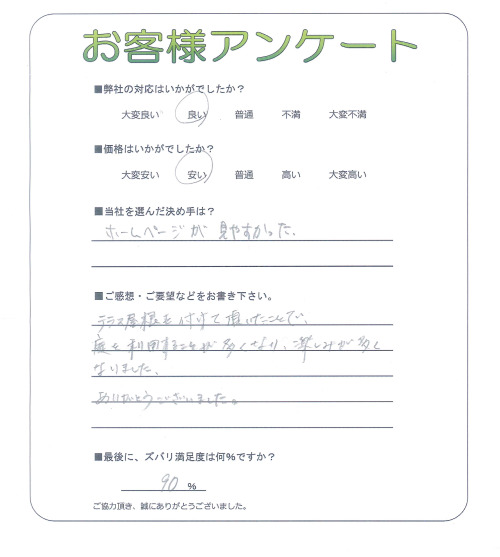 お客様アンケート
■弊社の対応はいかがでしたか？
大変良い 良い 普通 不満 大変不満
■価格はいかがでしたか？
大変安い 安い 普通 高い 大変高い
■当社を選んだ決め手は？
ホームページが見やすかった.
■ご感想・ご要望などをお書き下さい。
テラス屋根を付けて頂けたことで、
庭を利用することが多くなり、楽しみが多く
なりました.
ありがとうございました。
■最後に、ズバリ満足度は何%ですか？
90 %
ご協力頂き、誠にありがとうございました。